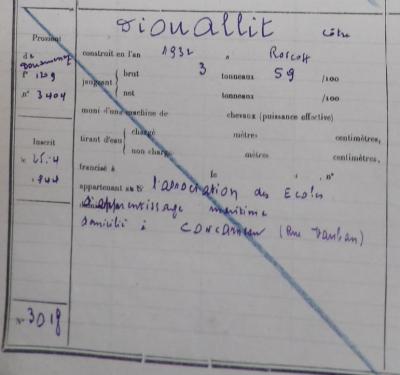 Diouallit Côtre
Provient
de Douarnenez
f° 1209
n° 3404
construit en l'an 1932 à Roscoff
jaugeant { brut 3 tonneaux 59 /100
net tonneaux /100
muni d'une machine de chevaux (puissance effective)
tirant d'eau { chargé mètres centimètres,
non chargé mètres centimètres,
Inscrit
le 25.4
1944
francisé à le n°
appartenant au l'association des Ecoles
d'apprentissage maritime
domicilié à Concarneau (Rue Vauban)
N° 3018